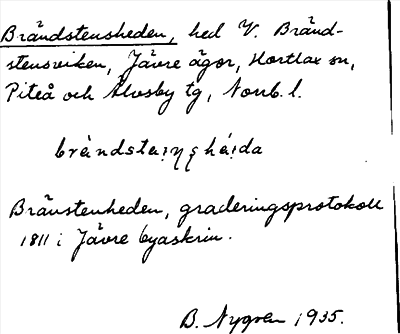 Brändstensheden, hed V. Bränd-
stensviken, Jävre ägor, Hortlax sn,
Piteå och Älvsby tg, Norrb. l.
Bränstenheden, graderingsprotokoll
1811 i Jävre byaskrin.
B. Nygren 1935.